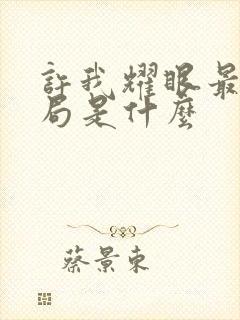 許我耀眼最
局是什麼
蔡景東